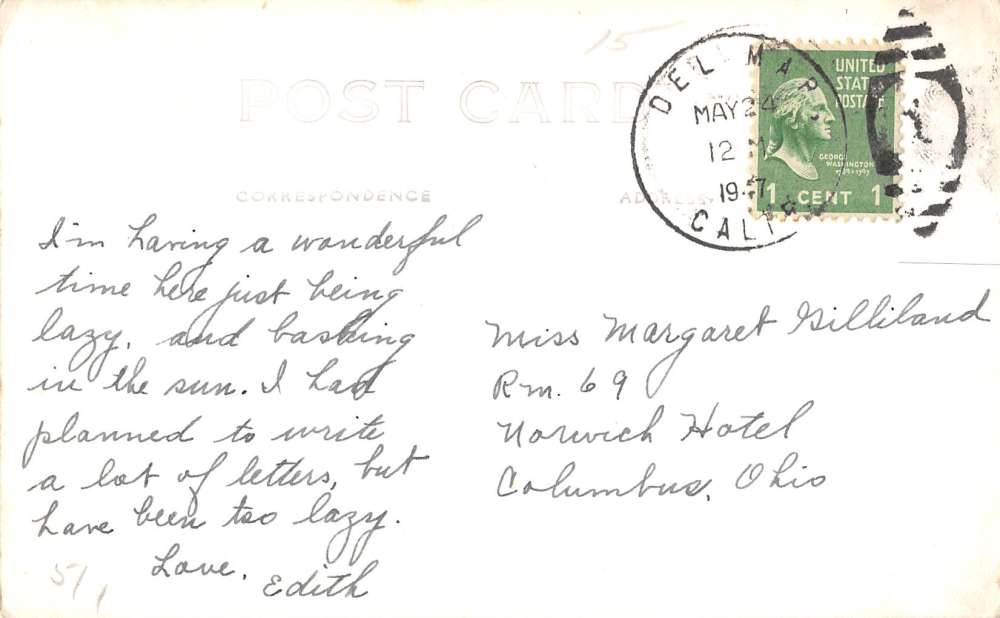 15
POST CARD
DEL MAR
MAY 24
12 M
1947
CALIF.
UNITED
STATES
POSTAGE
GEORGE
WASHINGTON
1789-1797
1 CENT 1
CORRESPONDENCE
ADDRESS
I'm having a wonderful
time here just being
lazy, and basking
in the sun. I had
planned to write
a lot of letters, but
have been too lazy.
Love,
Edith
Miss Margaret Gilliland
Rm. 69
Norwich Hotel
Columbus, Ohio